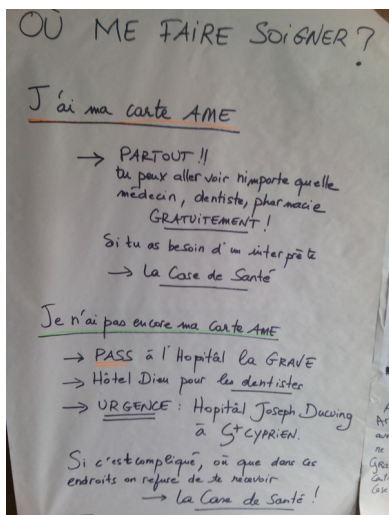 OÙ ME FAIRE SOIGNER ?
J'ai ma carte AME
→ PARTOUT !!
tu peux aller voir nimporte quelle
médecin, dentiste, pharmacie
GRATUITEMENT !
Si tu as besoin d'un interprète
→ la Case de Santé
Je n'ai pas encore ma carte AME
→ PASS à l'Hopitâl la GRAVE
→ Hôtel Dieu pour les dentistes
→ URGENCE : Hopitâl Joseph Ducuing
à St CYPRIEN.
Si c'est compliqué, où que dans ces
endroits on refuse de te recevoir
→ la Case de Santé !